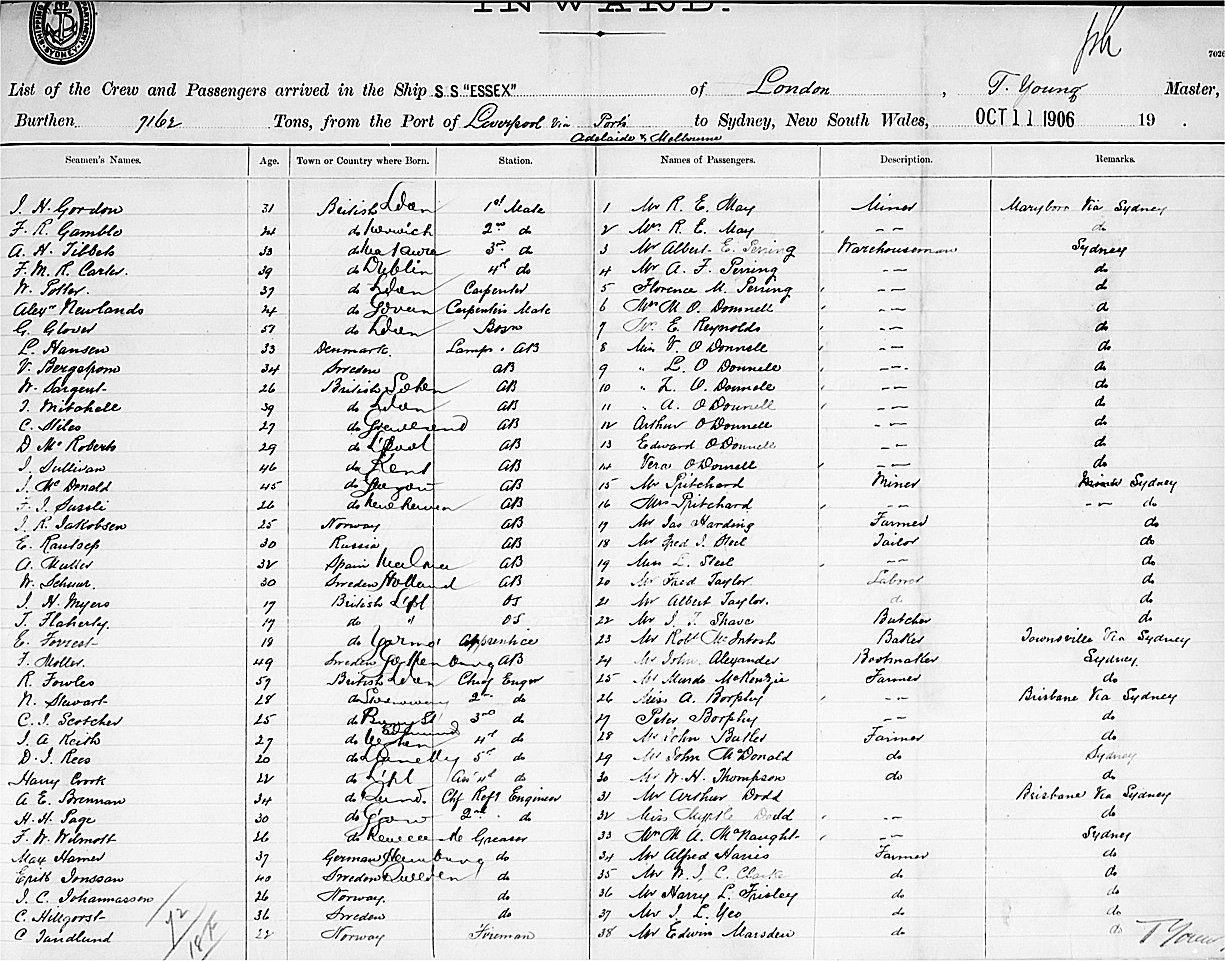 INWARD.
SYDNEY
ph
7026
List of the Crew and Passengers arrived in the Ship S S "ESSEX" of London, T. Young Master,
Burthen 7162 Tons, from the Port of Liverpool via Ports to Sydney, New South Wales, OCT 11 1906 19 .
Adelaide & Melbourne
Seamen's Names. Age. Town or Country where Born. Station. Names of Passengers. Description. Remarks.
J. H. Gordon 31 British Ldon 1st Mate 1 Mr R. E. May Miner Maryboro Via Sydney
F. R. Gamble 24 do Norwich 2nd do 2 Mrs R. E. May - - do
A. H. Tibbets 33 do 3rd do 3 Mr Albert E. Perring Warehouseman Sydney
F. M. R. Carter. 39 do Dublin 4th do 4 Mr A. F. Perring - - do
W. Potter. 37 do Ldon Carpenter 5 Florence M. Perring - - do
Alexr Newlands 24 do Govan Carpenters Mate 6 Mrs M. O. Donnell - - do
G. Glover 57 do Ldon Bosn 7 E. Reynolds - - do
L. Hansen 33 Denmark. Lamps. AB 8 Miss V. O Donnell - - do
V. Bergstrom 34 Sweden AB 9 " L. O Donnell - - do
W. Sargent. 26 British AB 10 " L. O. Donnell - - do
J. Mitchell 39 do Ldon AB 11 " A. O Donnell - - do
C. Stiles 27 do Gravesend AB 12 Arthur O Donnell - - do
D Mc Roberts 29 do L'pool AB 13 Edward O Donnell - - do
J. Sullivan 46 do Kent AB 14 Vera O Donnell - - do
J. Mc Donald 45 do AB 15 Mr Pritchard Miner Sydney
26 do AB 16 Mrs Pritchard - - do
J. R. Jakobsen 25 Norway AB 17 Mr Jas Harding Farmer do
E. Rautsep 30 Russia AB 18 Mr Fred J. Steel Tailor do
A. Muller 32 Spain AB 19 Miss L. Steel - - do
W. Schuur. 30 Sweden Holland AB 20 Mr Fred Taylor Laborer do
J. H. Myers 17 British L'pl OS 21 Mr Albert Taylor. do do
T. Flaherty. 17 do " OS 22 Mr J. T. Shave Butcher do
E. Forrest 18 do Apprentice 23 Mr Robt McIntosh Baker Townsville Via Sydney
F. Moller. 49 Sweden Gothenburg AB 24 Mr John Alexander Bootmaker Sydney.
R Fowles 57 British Ldon Chief Enger 25 Mr Murdo McKenzie Farmer do
N. Stewart 28 do 2nd do 26 Miss A. Borphy - - Brisbane Via Sydney
C. J. Scotcher 25 do Bury St Edmund 3rd do 27 Peter Borphy - - do
J. A Keith 27 do 4th do 28 Mr John Butler Farmer do
D. J. Rees 20 do Llanelly 5th do 29 Mr John McDonald do Sydney
Harry Crook 22 do L'pl 4th do 30 Mr W. H. Thompson do do
A E. Brennan 34 do Chf Refg Engineer 31 Mr Arthur Dodd Brisbane Via Sydney
H. H. Page 30 do 2nd do 32 Miss Myrtle Dodd - - do
F. W. Wilmott 26 do Greaser 33 Mrs M A. McNaught - - Sydney
Max Hamer 37 German Hamburg do 34 Mr Alfred Harris Farmer do
Erik Jonsson 40 Sweden do 35 Mr W. J. C. Clarke do do
J. C. Johannasson 26 Norway. do 36 Mr Harry L. Frisley do do
C. Hillgorst 36 Sweden do 37 Mr J. L. Yeo do do
C Sandlund 22 Norway Fireman 38 Mr Edwin Marsden do do
T Young.